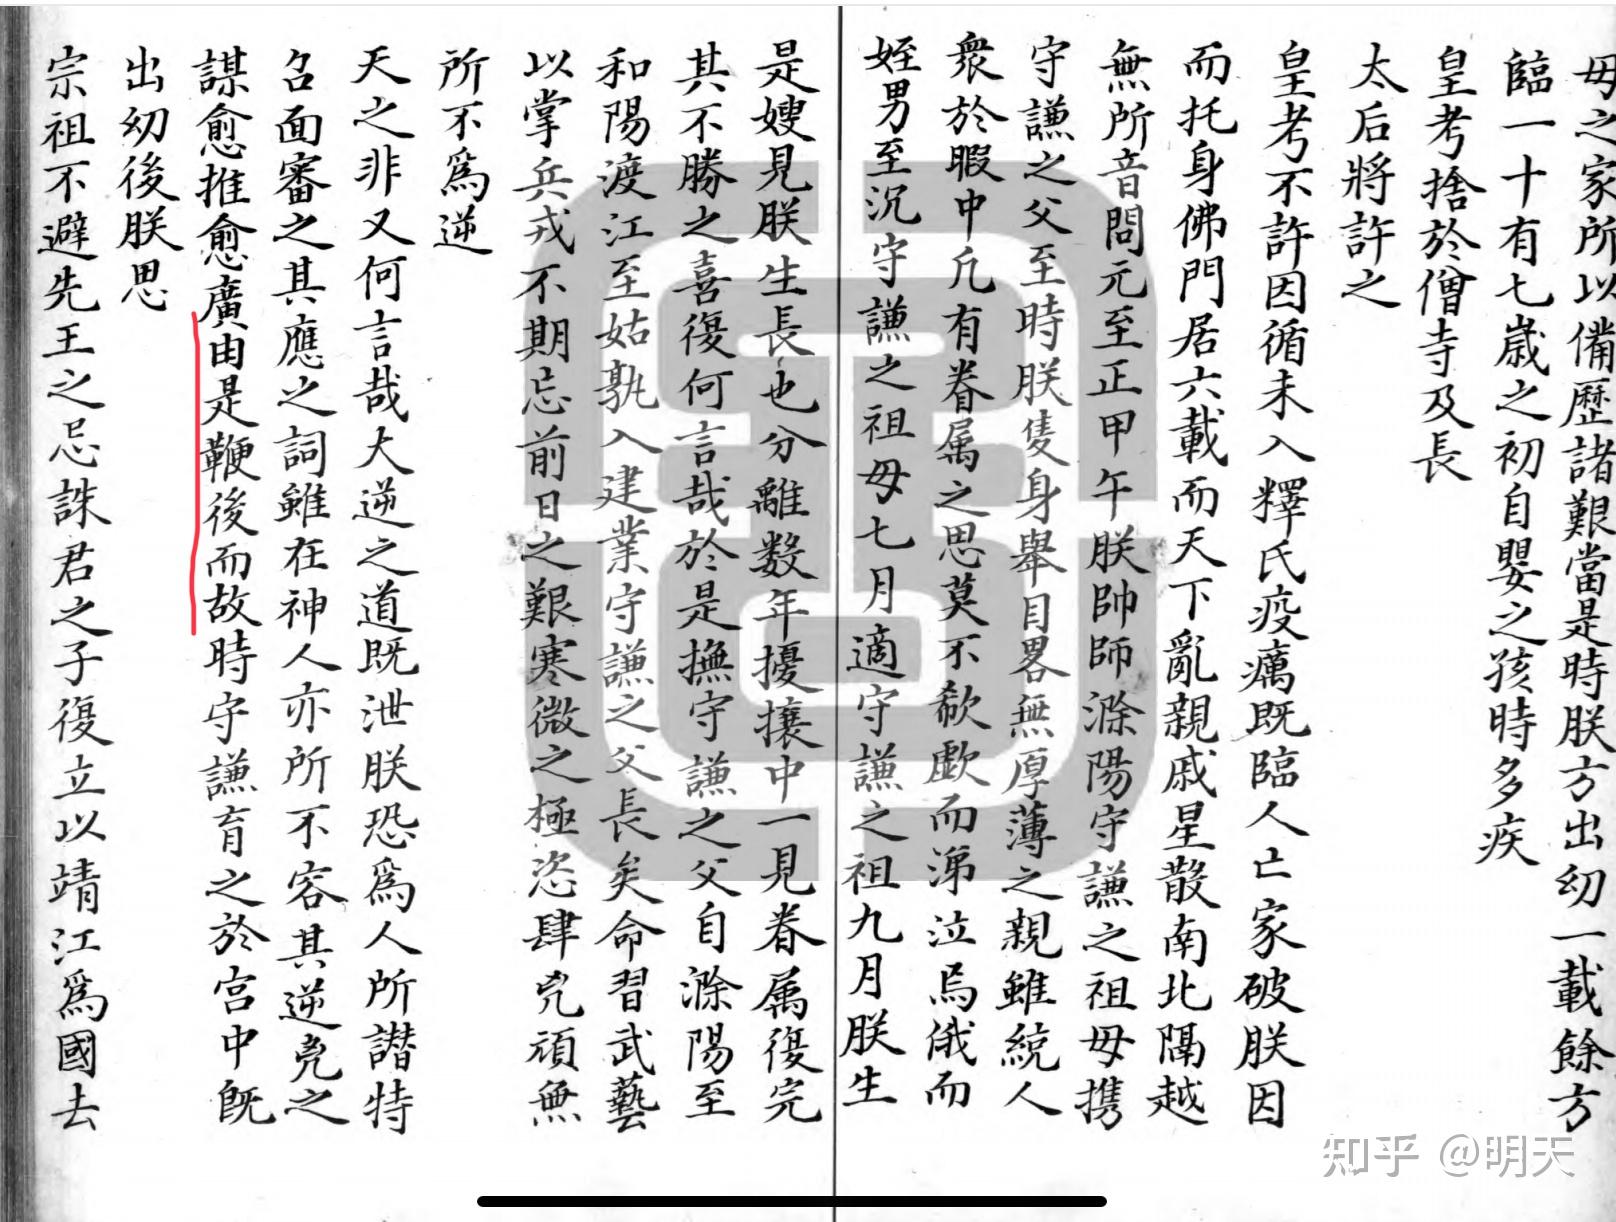 母之家所以備歷諸艱當是時朕方出幼一載餘方
臨一十有七歲之初自嬰之孩時多疾
皇考捨於僧寺及長
太后將許之
皇考不許因循未入釋氏疫癘既臨人亡家破朕因
而托身佛門居六載而天下亂親戚星散南北隔越
無所音問元至正甲午朕帥師滁陽守謙之祖母携
守謙之父至時朕隻身舉目畧無厚薄之親雖統人
衆於暇中凢有眷属之思莫不欷歔而涕泣焉俄而
姪男至沉守謙之祖母七月適守謙之祖九月朕生
是嫂見朕生長也分離数年擾攘中一見眷属復完
其不勝之喜復何言哉於是撫守謙之父自滁陽至
和陽渡江至姑孰入建業守謙之父長矣命習武藝
以掌兵戎不期忘前日之艱寒微之極恣肆兇頑無
所不爲逆
天之非又何言哉大逆之道既泄朕恐爲人所譖特
召面審之其應之詞雖在神人亦所不容其逆兇之
謀愈推愈廣由是鞭後而故時守謙育之於宫中旣
出幼後朕思
宗祖不避先王之忌誅君之子復立以靖江爲國去
知乎 @明天